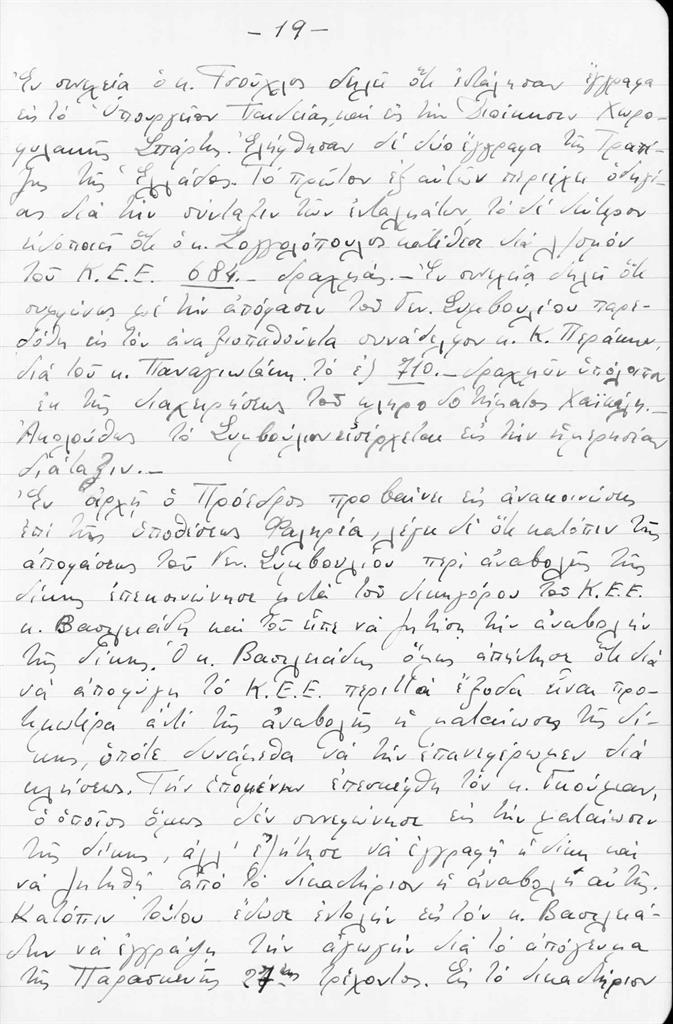 - 19 -
Ἐν συνεχείᾳ ὁ κ. Τσοῦχλος δηλοῖ ὅτι ἐστάλησαν ἔγγραφα
εἰς τὸ Ὑπουργεῖον Παιδείας, καὶ εἰς τὴν Διοίκησιν Χωρο-
φυλακῆς Σπάρτης. Ἐλήφθησαν δὲ δύο ἔγγραφα τῆς Τραπέ-
ζης τῆς Ἑλλάδος. Τὸ πρῶτον ἐξ αὐτῶν περιέχει ὁδηγί-
ας διὰ τὴν σύνταξιν τῶν ἐνταλμάτων, τὸ δὲ δεύτερον
εἰδοποιεῖ ὅτι ὁ κ. Σαγγαλόπουλος κατέθεσε διὰ λ/σμὸν
τοῦ Κ.Ε.Ε. 684.- δραχμάς. - Ἐν συνεχείᾳ δηλοῖ ὅτι
συμφώνως μὲ τὴν ἀπόφασιν τοῦ Γεν. Συμβουλίου παρε-
δόθη εἰς τὸν ἀναξιοπαθοῦντα συνάδελφον κ. Κ. Περάκην,
διὰ τοῦ κ. Παναγιωτάκη τὸ ἐκ 710.- δραχμῶν ὑπόλοιπον
ἐκ τῆς διαχειρήσεως τοῦ κληροδοτήματος Χαϊκάλη.-
Ἀκολούθως τὸ Συμβούλιον εἰσέρχεται εἰς τὴν ἡμερησίαν
διάταξιν.-
Ἐν ἀρχῇ ὁ Πρόεδρος προβαίνει εἰς ἀνακοινώσεις
ἐπὶ τῆς ὑποθέσεως Φαληρέα, λέγει δὲ ὅτι κατόπιν τῆς
ἀποφάσεως τοῦ Γεν. Συμβουλίου περὶ ἀναβολῆς τῆς
δίκης ἐπεκοινώνησε μετὰ τοῦ δικηγόρου τοῦ Κ.Ε.Ε.
κ. Βασιλειάδη καὶ τοῦ εἶπε νὰ ζητήσῃ τὴν ἀναβολήν
τῆς δίκης. Ὁ κ. Βασιλειάδης ὅμως ἀπήντησε ὅτι διὰ
νὰ ἀποφύγῃ τὸ Κ.Ε.Ε. περιττὰ ἔξοδα εἶναι προ-
τιμωτέρα ἀντὶ τῆς ἀναβολῆς ἡ ματαίωσις τῆς δί-
κης, ὁπότε δυνάμεθα νὰ τὴν ἐπαναφέρωμεν διὰ
κλήσεως. Τὴν ἑπομένην ἐπεσκέφθη τὸν κ. Γκούμαν,
ὁ ὁποῖος ὅμως δὲν συνεφώνησε εἰς τὴν ματαίωσιν
τῆς δίκης, ἀλλ' ἐζήτησε νὰ ἐγγραφῇ ἡ δίκη καὶ
νὰ ζητηθῇ ἀπὸ τὸ δικαστήριον ἡ ἀναβολὴ αὐτῆς.
Κατόπιν τούτου ἔδωσε ἐντολὴν εἰς τὸν κ. Βασιλειά-
δην νὰ ἐγγράψῃ τὴν ἀγωγὴν διὰ τὸ ἀπόγευμα
τῆς Παρασκευῆς 27ης τρέχοντος. Εἰς τὸ δικαστήριον